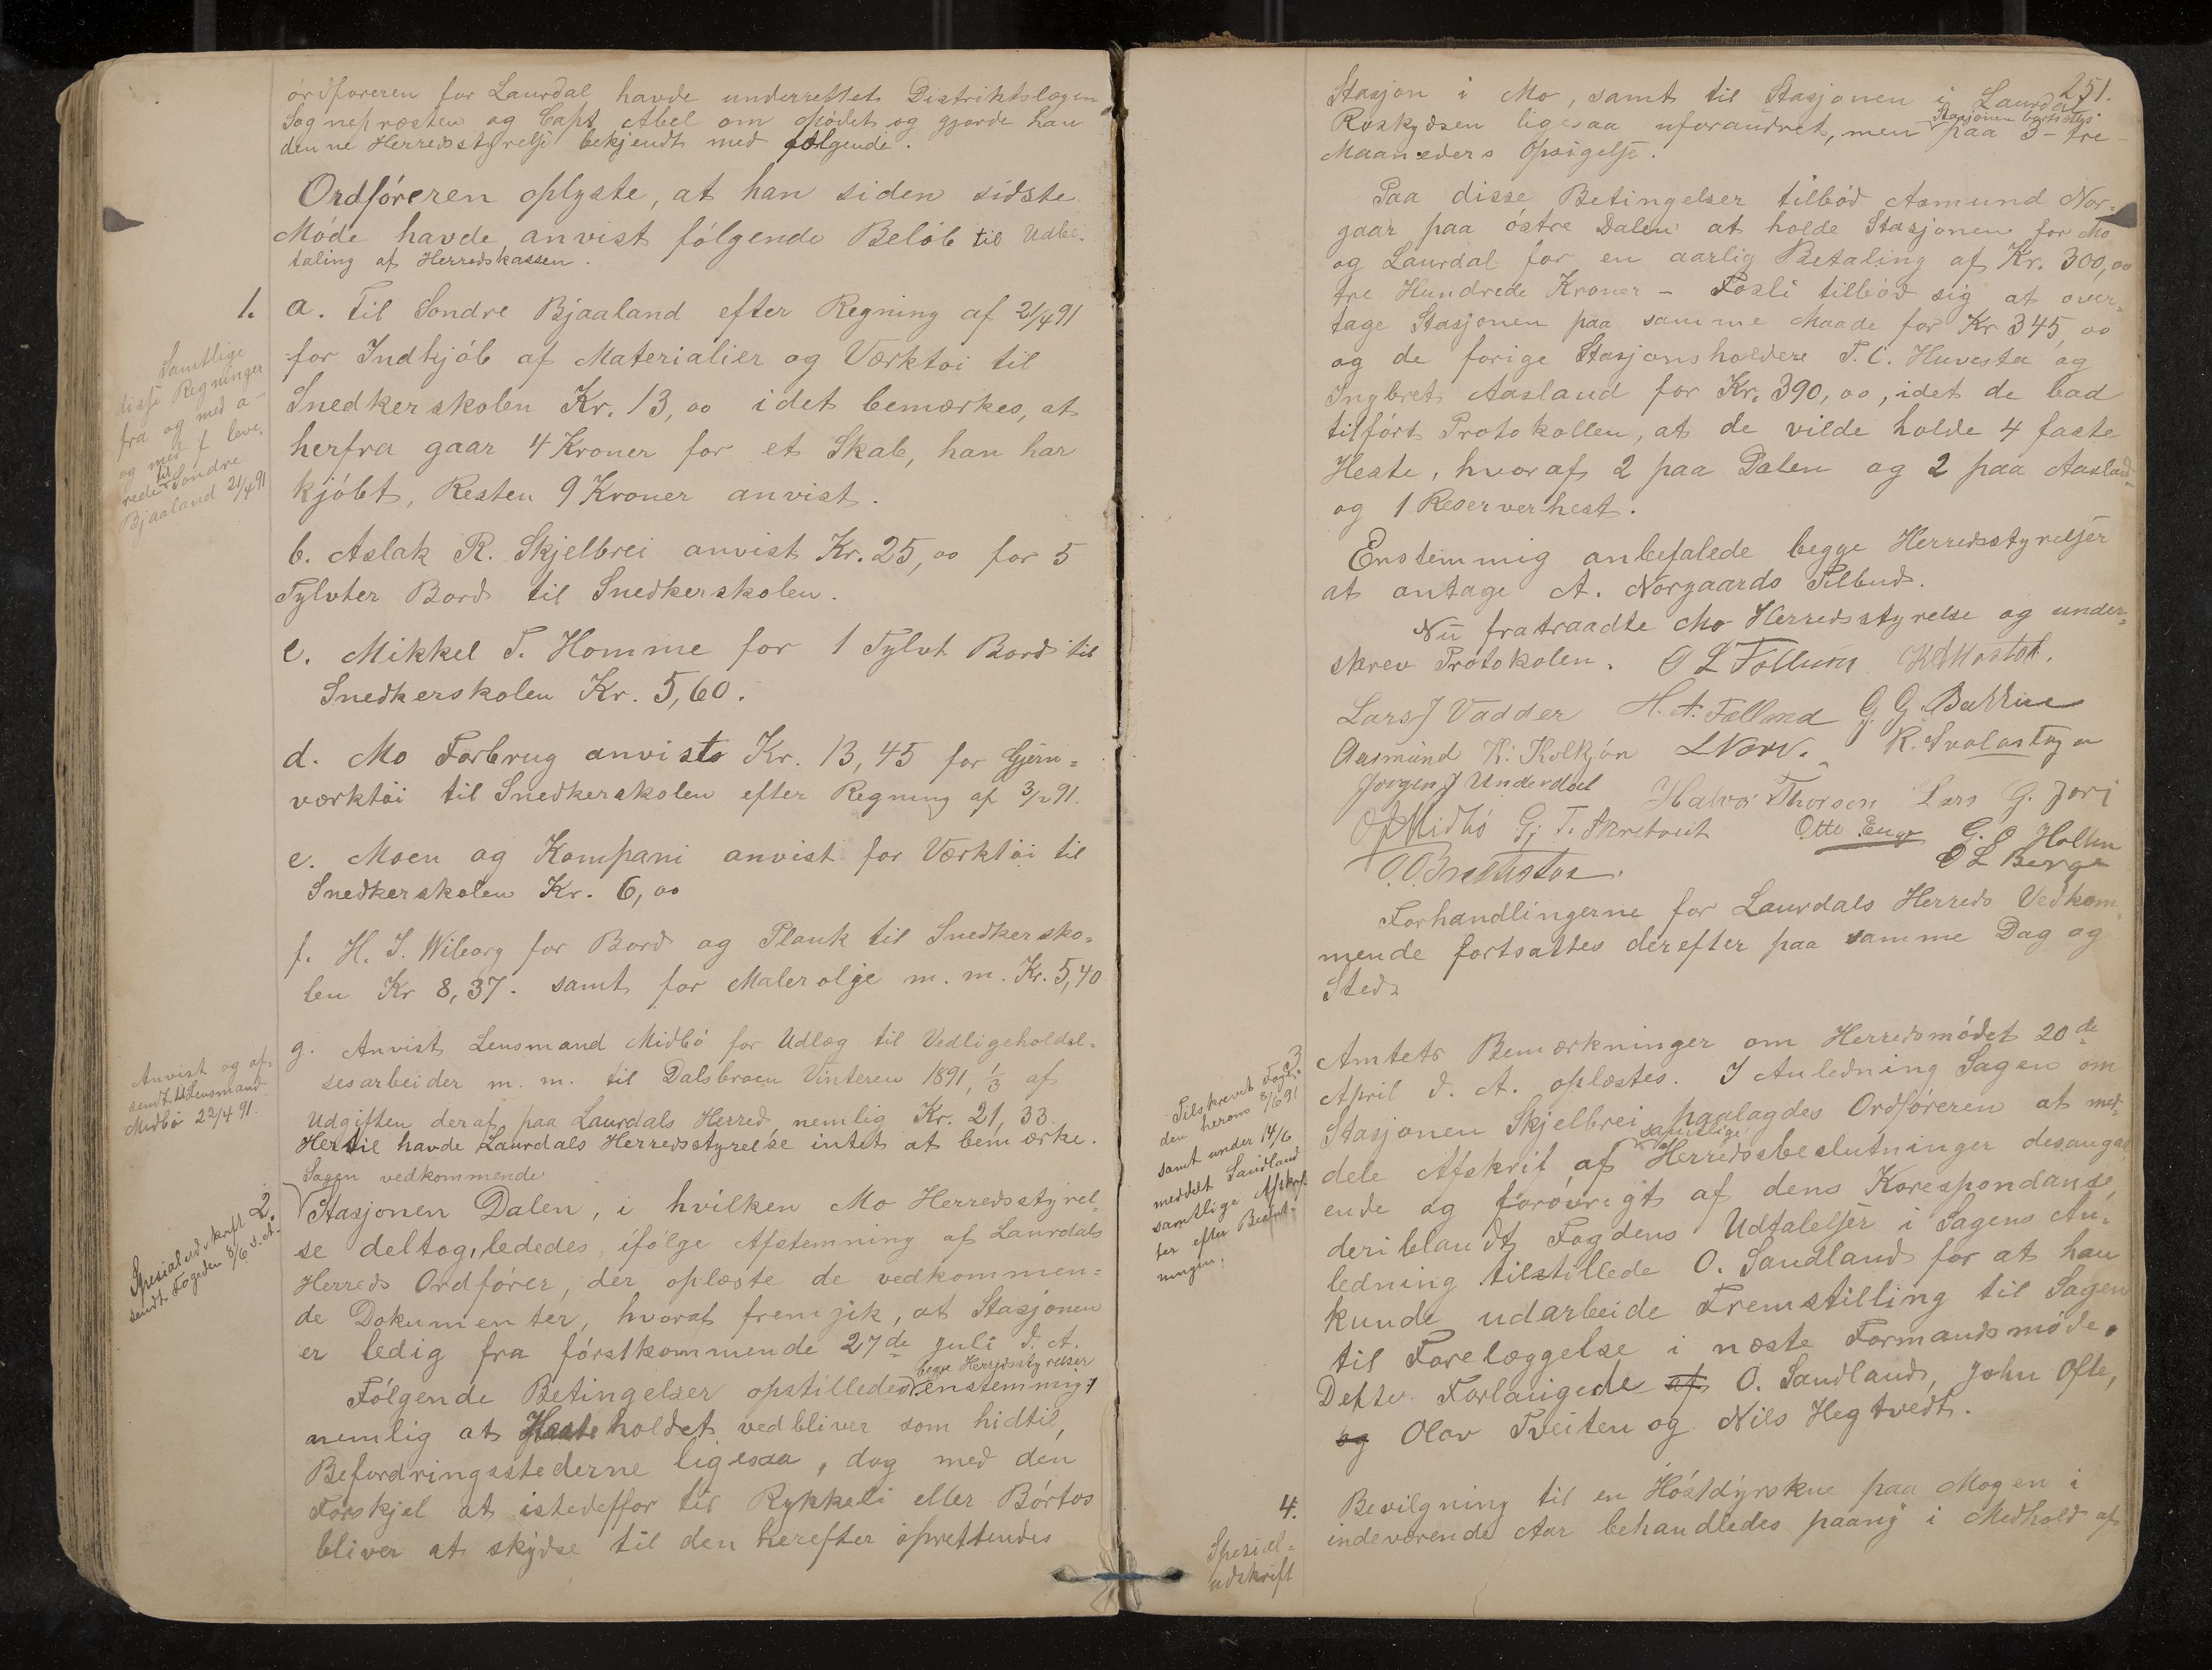 ordføreren for Laurdal havde underrettet Distriktslægen
Sognepræsten og Capt Abel om Mødet og gjorde han
denne Herredsstyrelse bekjendt med følgende.
Ordføreren oplyste, at han siden sidste
Møde havde anvist følgende Beløb til Udbe-
taling af Herredskassen.
1. a. Til Sondre Bjaaland efter Regning af 21/4 91
for Indkjøb af Materialier og Værktøi til
Snedkerskolen Kr. 13,00 idet bemærkes, at
herfra gaar 4 Kroner for et Skab, han har
kjøbt, Resten 9 Kroner anvist.
Samtlige
disse Regninger
fra og med a-
og med f leve-
redes til Sondre
Bjaaland 21/4 91
b. Aslak R. Skjelbrei anvist Kr. 25,00 for 5
Tylvter Bord til Snedkerskolen.
c. Mikkel T. Homme for 1 Tylvt Bord til
Snedkerskolen Kr. 5,60.
d. Mo Forbrug anvists Kr. 13,45 for Gjern=
værktøi til Snedkerskolen efter Regning af 3/2 91.
e. Moen og Kompani anvist for Værktøi til
Snedkerskolen Kr. 6,00
f. H. S. Wiborg for Bord og Plank til Snedkersko=
len Kr 8,37. samt for Malerolje m. m. Kr. 5,40
g. Anvist Lensmand Midbø for Udlæg til Vedligeholdel=
sesarbeider m. m. til Dalsbroen Vinteren 1891, 1/3 af
Udgiften deraf paa Laurdals Herred nemlig Kr. 21,33.
Hertil havde Laurdals Herredsstyrelse intet at bemærke.
Anvist og af-
sendt til Lensmand
Midbø 22/4 91.
2
Sagen vedkommende
Stasjonen Dalen, i hvilken Mo Herredsstyrel-
se deltog, lededes ifølge Afstemning af Laurdals
Herreds Ordfører, der oplæste de vedkommen=
de Dokumenter, hvoraf fremgik, at Stasjonen
er ledig fra førstkommende 27de Juli d. A.
Spesialudskrift
sendt Fogeden 8/6 d. A.
begge Herredsstyrelser
Følgende Betingelser opstilledes enstemmigt
nemlig at Hesteholdet vedbliver som hidtil,
Befordringsstederne ligesaa, dog med den
Forskjel at istedetfor til Rykkeli eller Børtos
bliver at skydse til den herefter oprettendes
251.
Stasjon i Mo, samt til Stasjonen i Laurdal
Stasjonen bortsettes
Roskydsen ligesaa uforandret, men paa 3 - tre -
Maaneders Opsigelse.
Paa disse Betingelser tilbød Asmund Nor-
gaar paa østre Dalen at holde Stasjonen for Mo
og Laurdal for en aarlig Betaling af Kr. 300,00
tre Hundrede Kroner - Fosli tilbød sig at over-
tage Stasjonen paa samme Maade for Kr 345,00
og de forige Stasjonsholdere T. C. Huvestad og
Ingbret Aasland for Kr. 390,00, idet de bad
tilført Protokollen, at de vilde holde 4 faste
Heste, hvoraf 2 paa Dalen og 2 paa Aasland-
og 1 Reserverhest.
Enstemmig anbefalede begge Herredsstyrelser
at antage A. Norgaards Tilbud.
Nu fratraadte Mo Herredsstyrelse og under-
skrev Protokolen. O L Follum
Lars J Vadder H. A. G. G. Bakkene
Aasmund K. Kolkjøn LNorv. K. Svalastoga
Jørgen J Underdal Halvor Thorsen Lars G.
Midbø G. T. Otte G. O Holtun
O L Berge
Forhandlingerne for Laurdals Herreds Vedkom-
mende fortsattes derefter paa samme Dag og
Sted.
3
Amtets Bemærkninger om Herredsmødet 20de
April d. A. oplæstes. I Anledning Sagen om
Stasjonen Skjelbrei paalagdes Ordføreren at med-
samtlige
dele Afskrift af Herredsbeslutninger desangaa
ende og forøvrigt af dens Korespondanse,
deriblandt Fogdens Udtalelser i Sagens An-
ledning tilstillede O. Sandland for at han
kunde udarbeide Fremstilling til Sagen
til Forelæggelse i næste Formandsmøde.
Dette Forlangede af O. Sandland, John Ofte,
og Olav Tveiten og Nils Hegtvedt.
Tilskrevet Foge-
den herom 8/6 91
samt under 14/6
meddelt Sandland
samtlige Afskrif
ter efter Beslut-
ningen.
4. Bevilgning til en Høstdyrskue paa Mogen i
indeværende Aar behandledes paany i Medhold af
Spesial=
udskrift